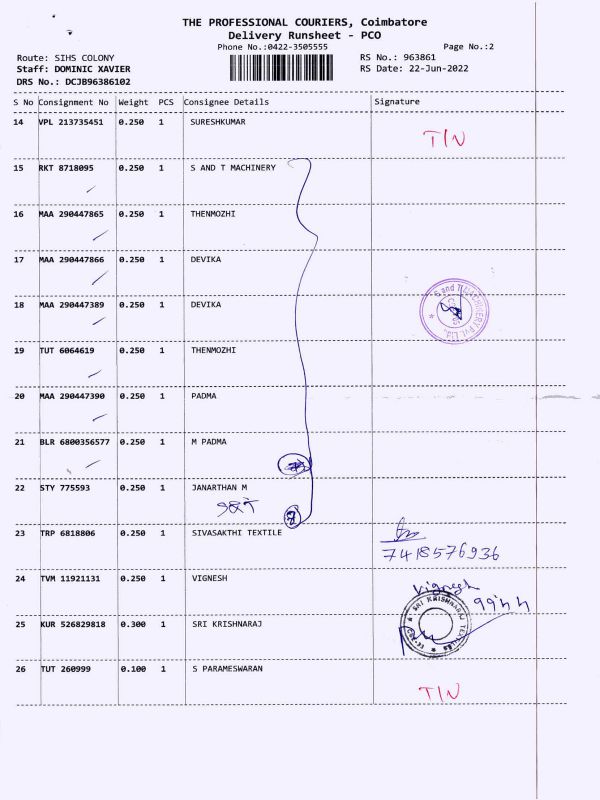 THE PROFESSIONAL COURIERS, Coimbatore
Delivery Runsheet - PCO
Phone No.:0422-3505555 Page No.:2
Route: SIHS COLONY RS No.: 963861
Staff: DOMINIC XAVIER RS Date: 22-Jun-2022
DRS No.: DCJB96386102
S No Consignment No Weight PCS Consignee Details Signature
14 VPL 213735451 0.250 1 SURESHKUMAR
T/N
15 RKT 8718095 0.250 1 S AND T MACHINERY
16 MAA 290447865 0.250 1 THENMOZHI
17 MAA 290447866 0.250 1 DEVIKA
18 MAA 290447389 0.250 1 DEVIKA
S and T MACHINERY Pvt. Ltd.
19 TUT 6064619 0.250 1 THENMOZHI
20 MAA 290447390 0.250 1 PADMA
21 BLR 6800356577 0.250 1 M PADMA
22 STY 775593 0.250 1 JANARTHAN M
S&T
8
23 TRP 6818806 0.250 1 SIVASAKTHI TEXTILE
7418576936
24 TVM 11921131 0.250 1 VIGNESH
Vignesh
9944
25 KUR 526829818 0.300 1 SRI KRISHNARAJ
SRI KRISHNARAJ TEXTILES
26 TUT 260999 0.100 1 S PARAMESWARAN
T/N